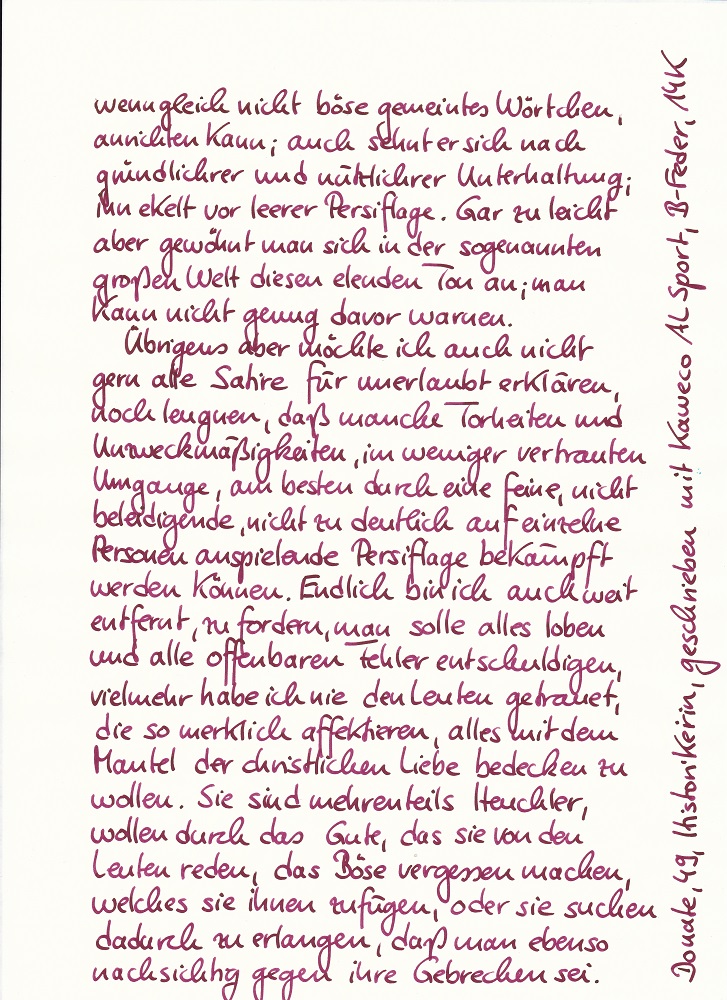 wenngleich nicht böse gemeintes Wörtchen,
anrichten kann; auch sehnt er sich nach
gründlichrer und nützlichrer Unterhaltung;
ihn ekelt vor leerer Persiflage. Gar zu leicht
aber gewöhnt man sich in der sogenannten
großen Welt diesen elenden Ton an; man
kann nicht genug davor warnen.
Übrigens aber möchte ich auch nicht
gern alle Satire für unerlaubt erklären,
noch leugnen, daß manche Torheiten und
Unzweckmäßigkeiten, im weniger vertrauten
Umgange, am besten durch eine feine, nicht
beleidigende, nicht zu deutlich auf einzelne
Personen anspielende Persiflage bekämpft
werden können. Endlich bin ich auch weit
entfernt, zu fordern, man solle alles loben
und alle offenbaren Fehler entschuldigen,
vielmehr habe ich nie den Leuten getrauet,
die so merklich affektieren, alles mit dem
Mantel der christlichen Liebe bedecken zu
wollen. Sie sind mehrenteils Heuchler,
wollen durch das Gute, das sie von den
Leuten reden, das Böse vergessen machen,
welches sie ihnen zufügen, oder sie suchen
dadurch zu erlangen, daß man ebenso
nachsichtig gegen ihre Gebrechen sei.
Donate, 49, Historikerin, geschrieben mit Kaweco AL Sport, B-Feder, 14K